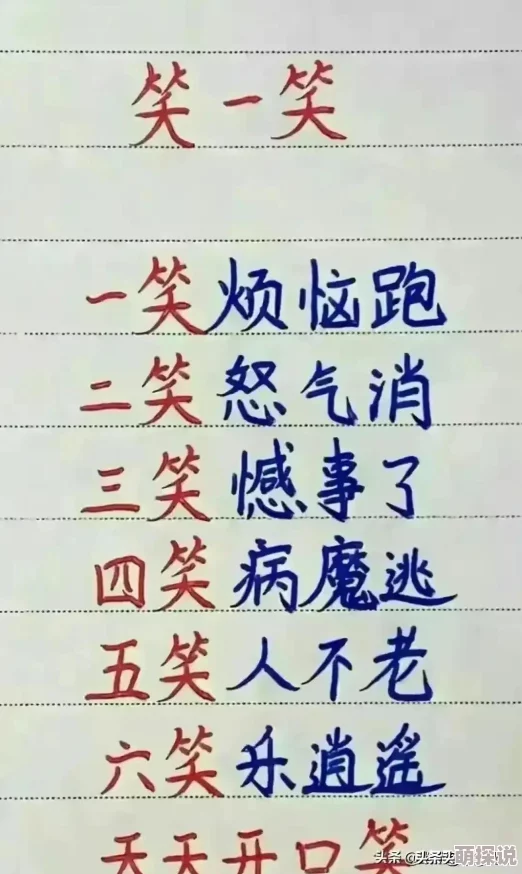 笑一笑
一笑烦恼跑
二笑怒气消
三笑憾事了
四笑病魔逃
五笑人不老
六笑乐逍遥
天天开口笑
头条 @头条
萌探说